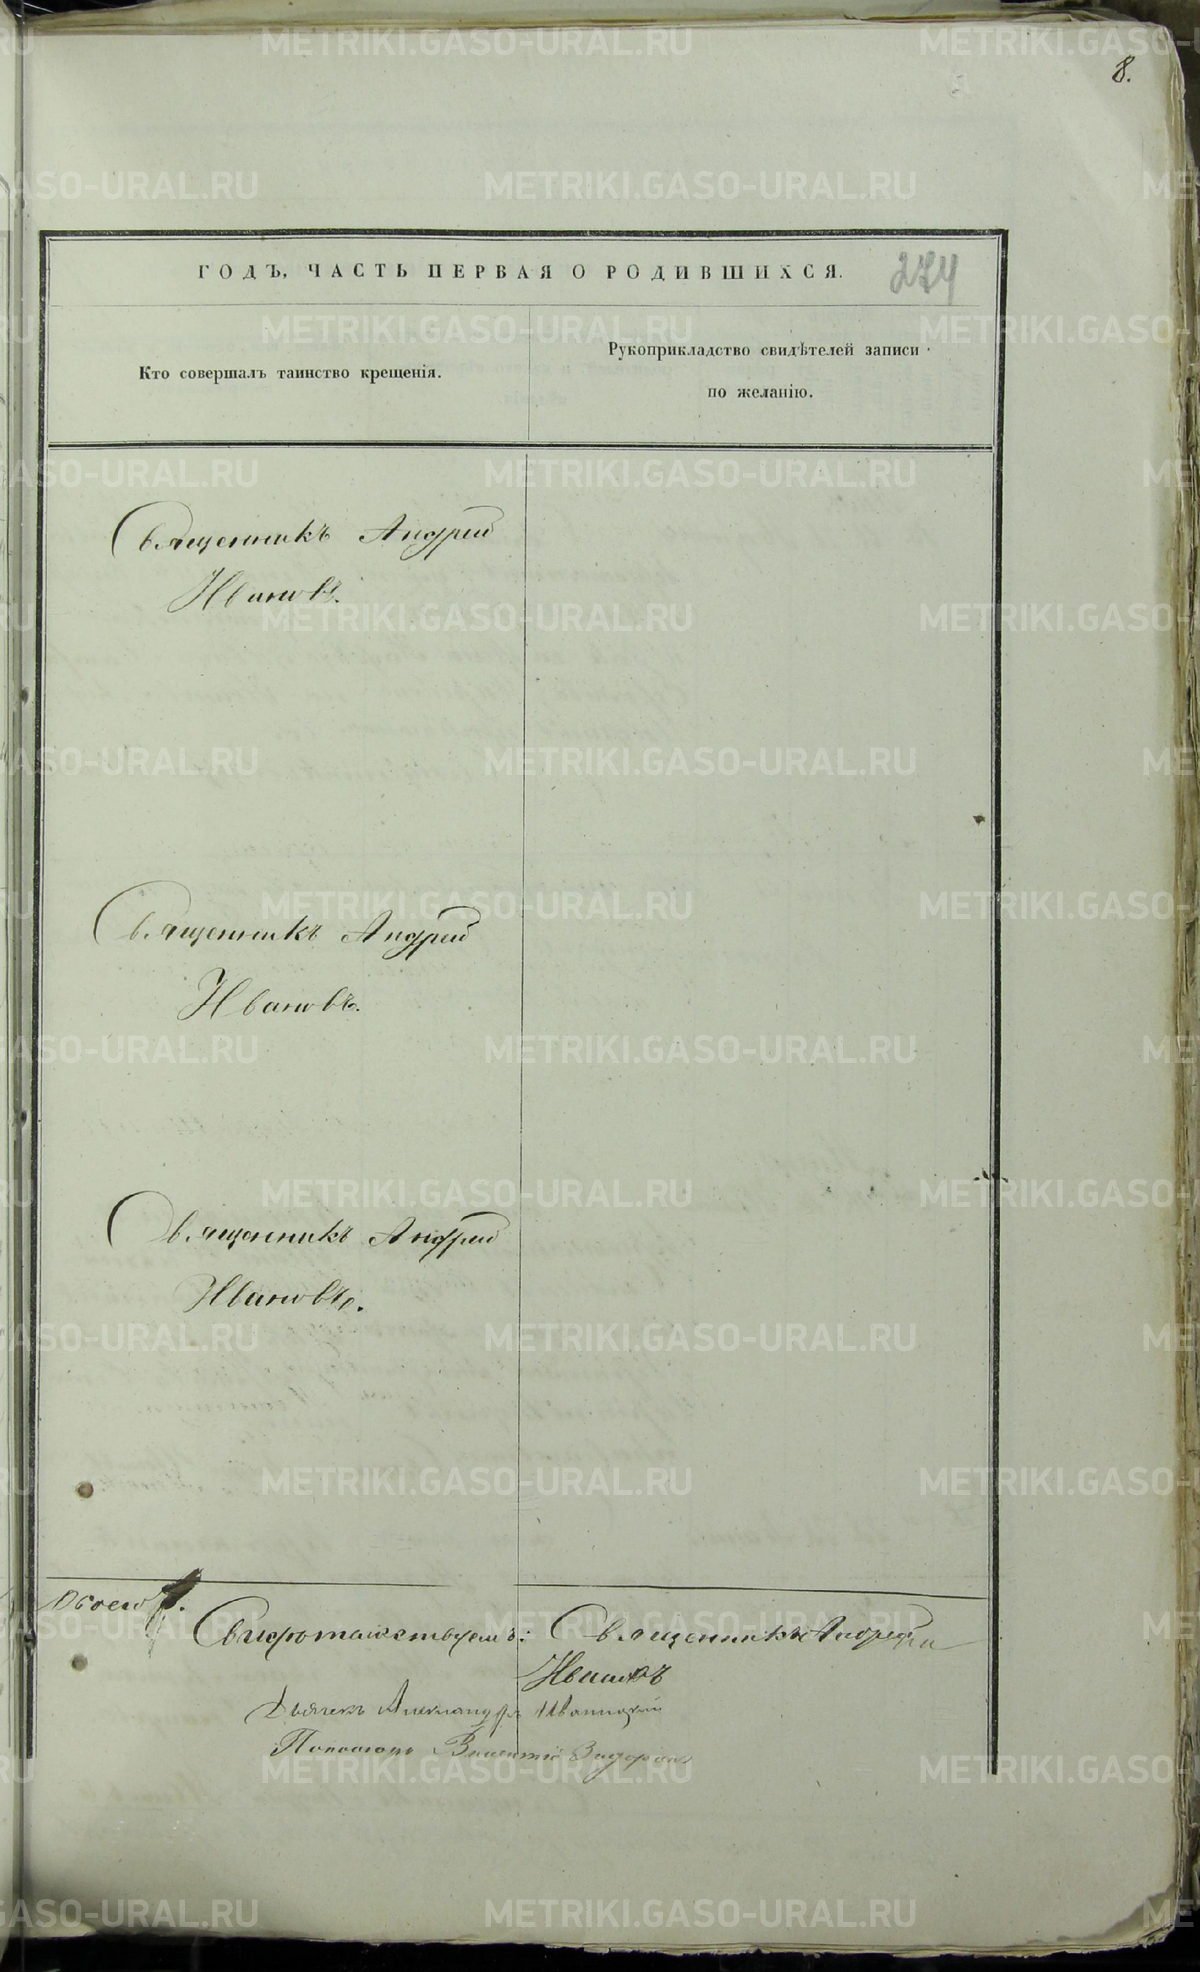 8.
ГОДЪ, ЧАСТЬ ПЕРВАЯ О РОДИВШИХСЯ.
274
Кто совершалъ таинство крещенія.
Рукоприкладство свидѣтелей записи
по желанію.
Священникъ Андрей
Ивановъ.
Священникъ Андрей
Ивановъ.
Священникъ Андрей
Ивановъ.
Обоего
Свидѣтельствуемъ: Священникъ Андрей
Ивановъ
Дьячекъ Александръ
Пономарь
METRIKI.GASO-URAL.RU